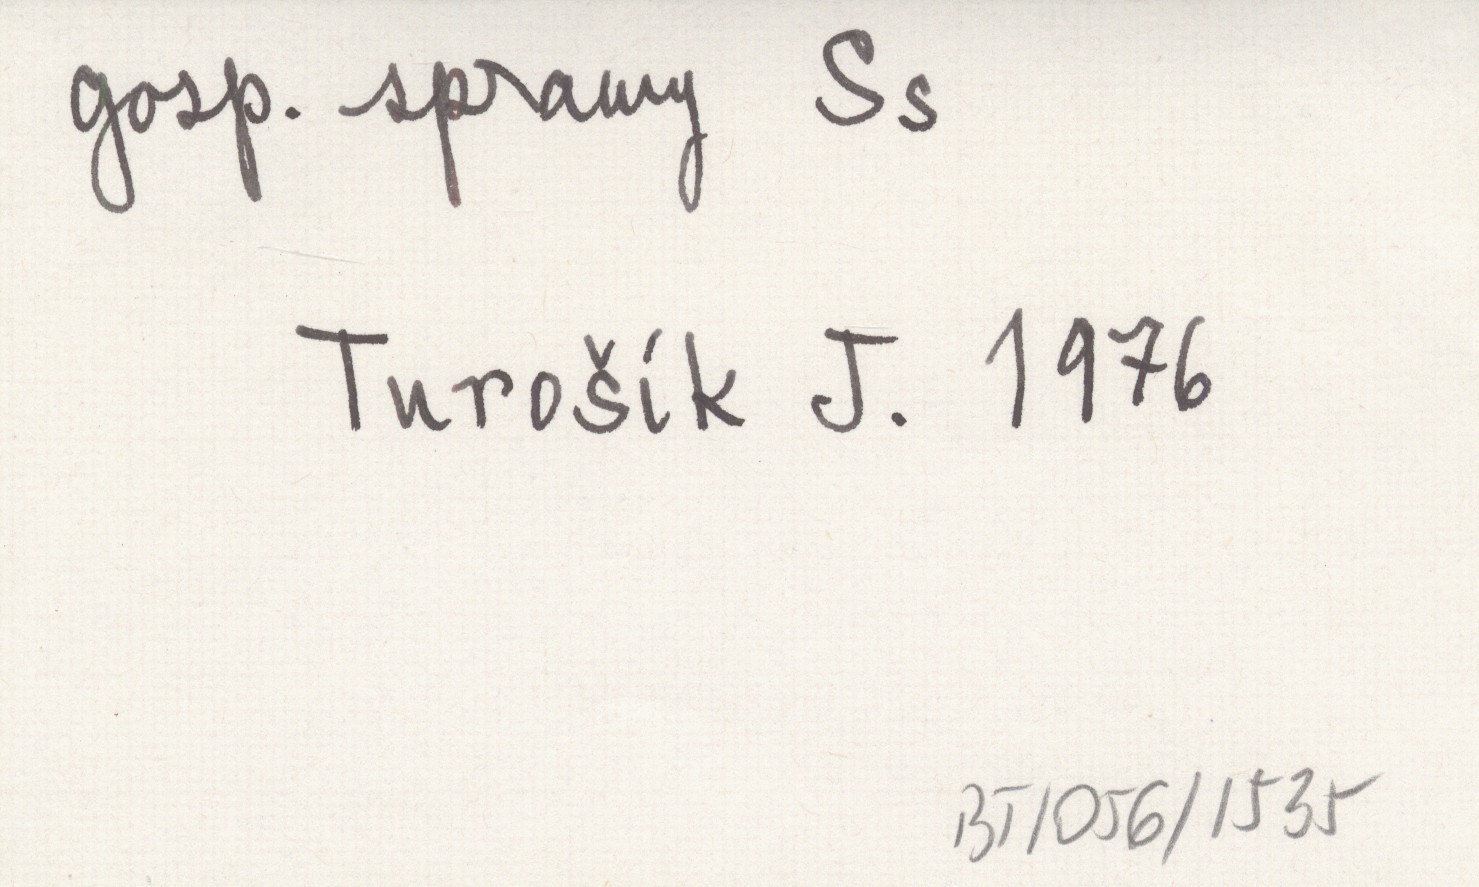 gosp. sprawy Ss
Turošík J. 1976
BT/056/1535